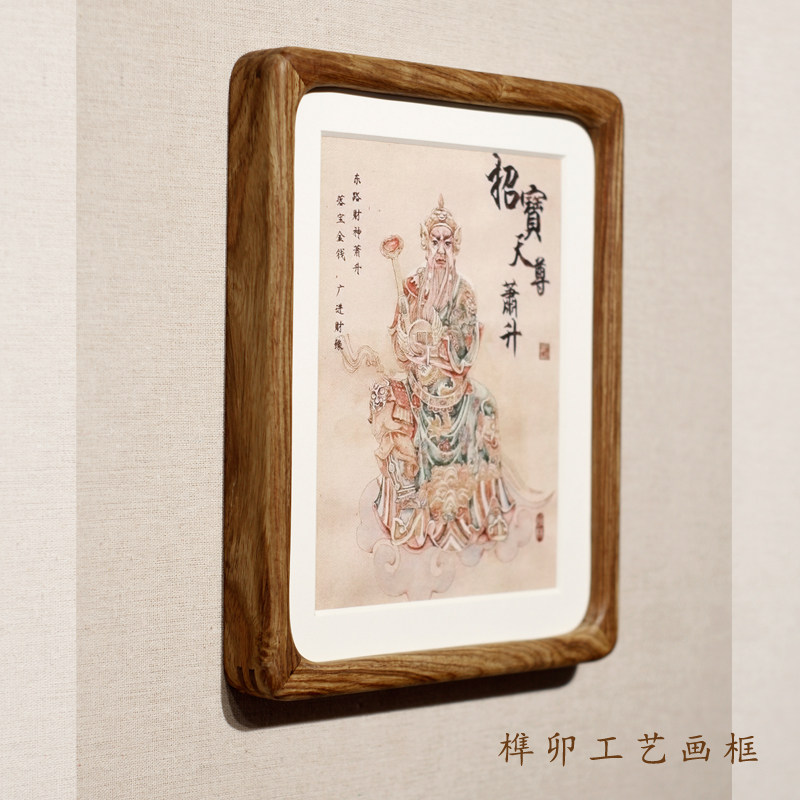 招寶天尊
蕭升
东路财神萧升
落宝金钱，广进财缘
榫卯工艺画框